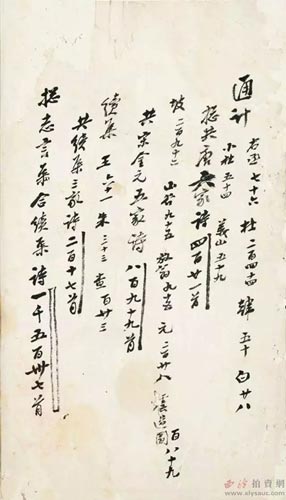 通計 右丞七十六 杜 韓五十 白廿八
小杜五十四 義山五十九
揔共唐六家詩四百廿一首
坡二百九十二 山谷九十五 放翁九十五 元二百廿八 道園百八十九
共宋金元五家詩八百九十九首
續集 王六十一 朱三十三 查百廿三
共續集三家詩二百十七首
揔志言集合續集詩一千五百卅七首
西泠拍賣網
www.xlysauc.com